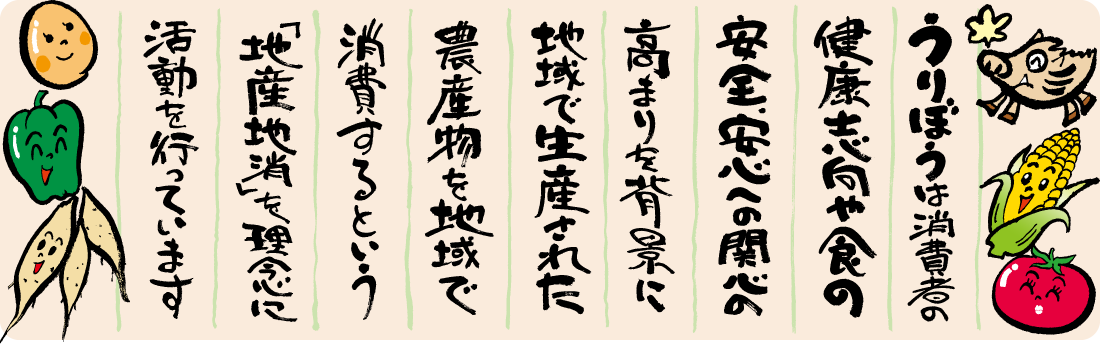 うりぼうは消費者の
健康志向や食の
安全、安心への関心の
高まりを背景に
地域で生産された
農産物を地域で
消費するという
「地産地消」を理念に
活動を行っています